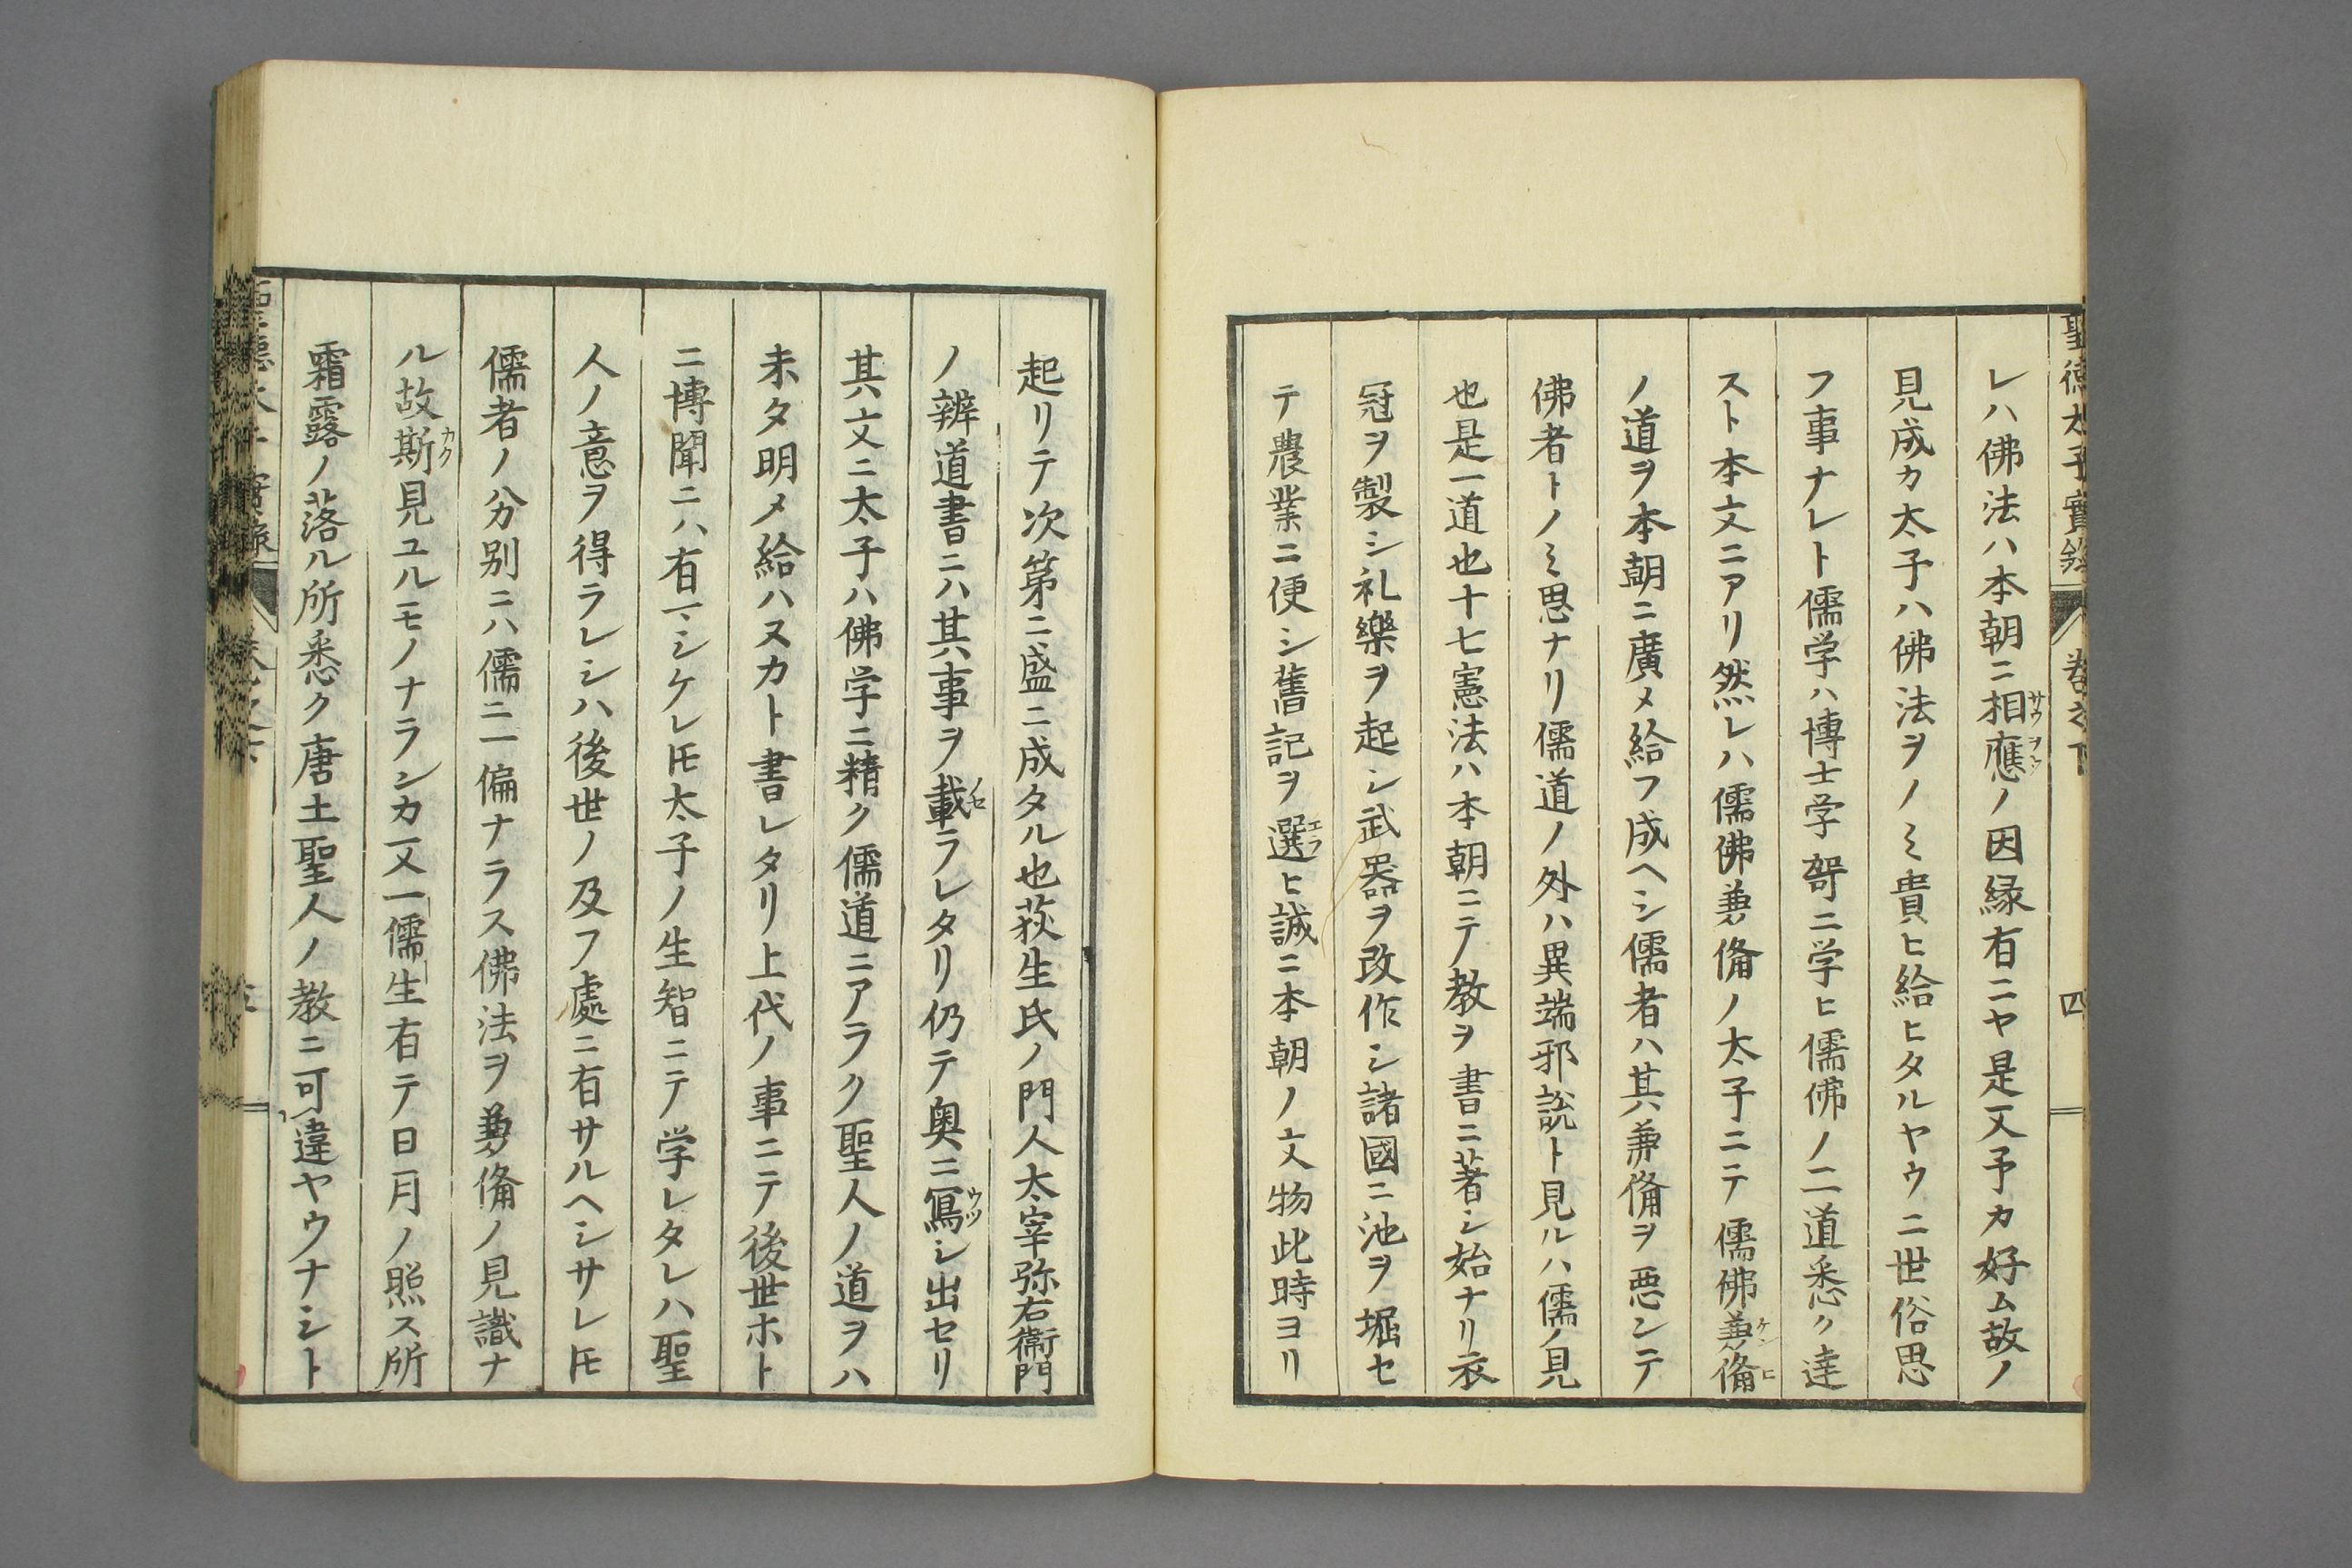 聖徳太子實録 卷之下 四
レハ佛法ハ本朝ニ相應ノ因縁有ニヤ是又予カ好ム故ノ
見成カ太子ハ佛法ヲノミ貴ヒ給ヒタルヤウニ世俗思
フ事ナレト儒学ハ博士学哿ニ学ヒ儒佛ノ二道悉ク達
スト本文ニアリ然レハ儒佛兼備ノ太子ニテ儒佛兼備
ノ道ヲ本朝ニ廣メ給フ成ヘシ儒者ハ其兼備ヲ悪ンテ
佛者トノミ思ナリ儒道ノ外ハ異端邪説ト見ルハ儒ノ見
也是一道也十七憲法ハ本朝ニテ教ヲ書ニ著シ始ナリ衣
冠ヲ製シ礼樂ヲ起シ武器ヲ改作シ諸國ニ池ヲ堀セ
テ農業ニ便シ舊記ヲ選ヒ誠ニ本朝ノ文物此時ヨリ
起リテ次第ニ盛ニ成タル也荻生氏ノ門人太宰弥右衛門
ノ辨道書ニハ其事ヲ載ラレタリ仍テ奥ニ寫シ出セリ
其文ニ太子ハ佛学ニ精ク儒道ニアラク聖人ノ道ヲハ
未タ明メ給ハヌカト書レタリ上代ノ事ニテ後世ホト
ニ博聞ニハ有マシケレ𪜈太子ノ生智ニテ学レタレハ聖
人ノ意ヲ得ラレシハ後世ノ及フ處ニ有サルヘシサレ𪜈
儒者ノ分別ニハ儒ニ一偏ナラス佛法ヲ兼備ノ見識ナ
ル故斯見ユルモノナランカ又一儒生有テ日月ノ照ス所
霜露ノ落ル所悉ク唐土聖人ノ教ニ可違ヤウナシト